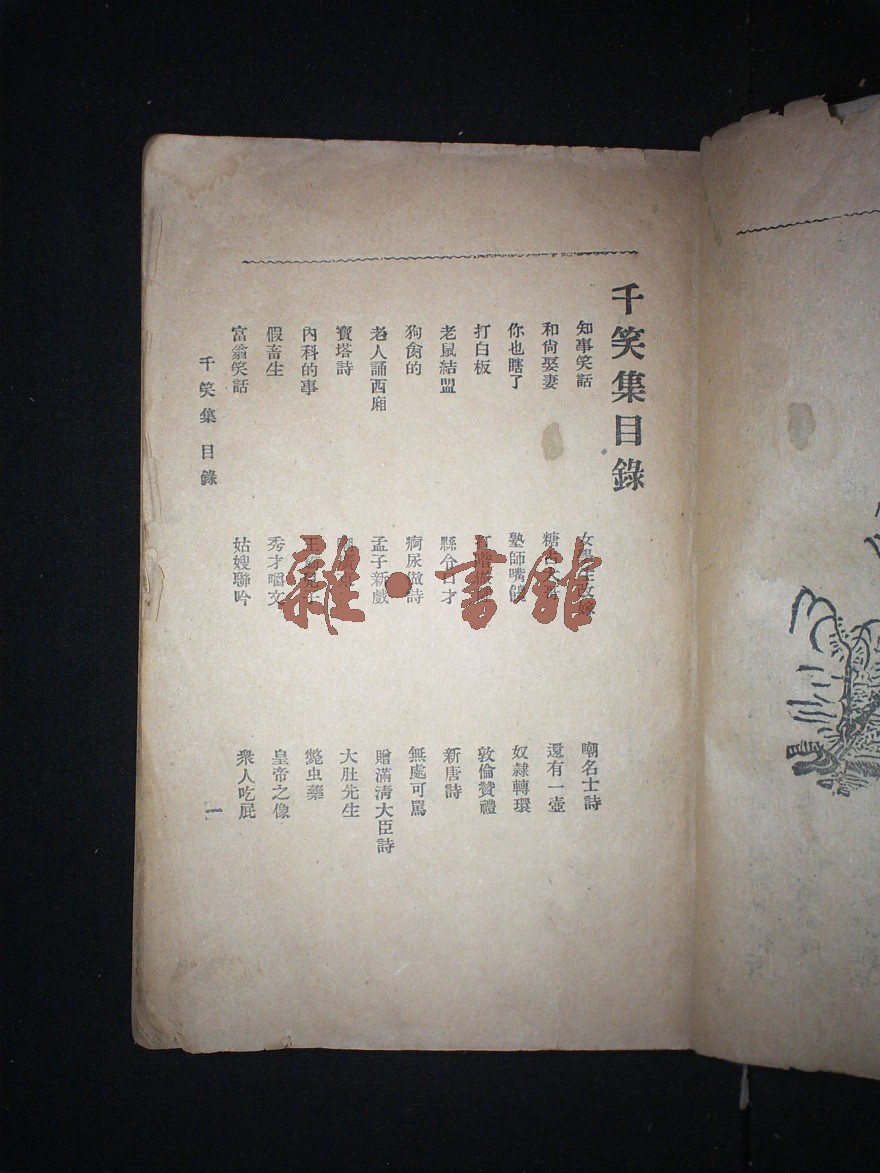 千笑集目錄
知事笑話 嘲名士詩
和尚娶妻 還有一壺
你也瞎了 塾師嘴 奴隸轉環
打白板 敦倫贊禮
老鼠結盟 縣令口才 新唐詩
狗肏的 痾尿做詩 無處可罵
老人誦西廂 孟子新戲 贈滿清大臣詩
寶塔詩 大肚先生
內科的事 斃虫藥
假畜生 秀才嚼文 皇帝之像
富翁笑話 姑嫂聯吟 衆人吃屁
千笑集 目錄 一
雜·書館